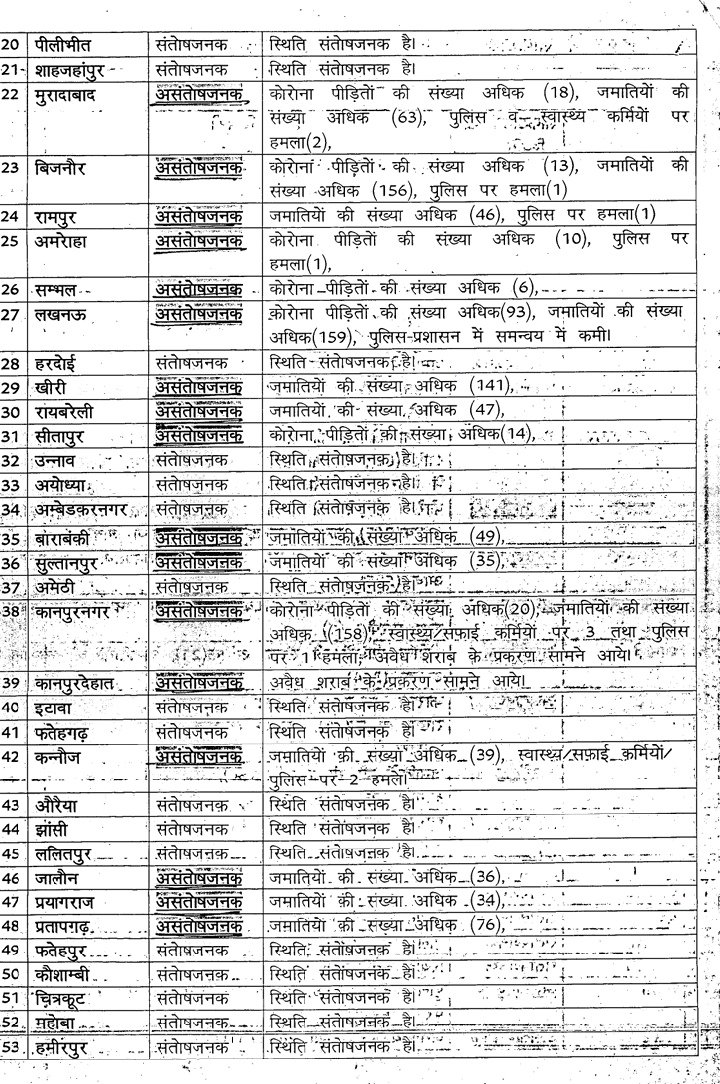 20 पीलीभीत संतोषजनक स्थिति संतोषजनक है।
21 शाहजहांपुर संतोषजनक स्थिति संतोषजनक है।
22 मुरादाबाद असंतोषजनक कोरोना पीड़ितों की संख्या अधिक (18), जमातियों की
संख्या अधिक (63), पुलिस व स्वास्थ्य कर्मियों पर
हमला(2),
23 बिजनौर असंतोषजनक कोरोना पीड़ितों की संख्या अधिक (13), जमातियों की
संख्या अधिक (156), पुलिस पर हमला(1)
24 रामपुर असंतोषजनक जमातियों की संख्या अधिक (46), पुलिस पर हमला(1)
25 अमरोहा असंतोषजनक कोरोना पीड़ितों की संख्या अधिक (10), पुलिस पर
हमला(1),
26 सम्भल असंतोषजनक कोरोना पीड़ितों की संख्या अधिक (6),
27 लखनऊ असंतोषजनक कोरोना पीड़ितों की संख्या अधिक(93), जमातियों की संख्या
अधिक(159), पुलिस-प्रशासन में समन्वय में कमी।
28 हरदोई संतोषजनक स्थिति संतोषजनक है।
29 खीरी असंतोषजनक जमातियों की संख्या अधिक (141),
30 रायबरेली असंतोषजनक जमातियों की संख्या अधिक (47),
31 सीतापुर असंतोषजनक कोरोना पीड़ितों की संख्या अधिक(14),
32 उन्नाव संतोषजनक स्थिति संतोषजनक है।
33 अयोध्या संतोषजनक स्थिति संतोषजनक है।
34 अम्बेडकरनगर संतोषजनक स्थिति संतोषजनक है।
35 बाराबंकी असंतोषजनक जमातियों की संख्या अधिक (49),
36 सुल्तानपुर असंतोषजनक जमातियों की संख्या अधिक (35),
37 अमेठी संतोषजनक स्थिति संतोषजनक है।
38 कानपुरनगर असंतोषजनक कोरोना पीड़ितों की संख्या अधिक(20), जमातियों की संख्या
अधिक (158), स्वास्थ्य/सफ़ाई कर्मियों पर 3 तथा पुलिस
पर 1 हमला, अवैध शराब के प्रकरण सामने आये।
39 कानपुरदेहात असंतोषजनक अवैध शराब के प्रकरण सामने आये।
40 इटावा संतोषजनक स्थिति संतोषजनक है।
41 फतेहगढ़ संतोषजनक स्थिति संतोषजनक है।
42 कन्नौज असंतोषजनक जमातियों की संख्या अधिक (39), स्वास्थ्य/सफ़ाई कर्मियों/
पुलिस पर 2 हमले।
43 औरैया संतोषजनक स्थिति संतोषजनक है।
44 झांसी संतोषजनक स्थिति संतोषजनक है।
45 ललितपुर संतोषजनक स्थिति संतोषजनक है।
46 जालौन असंतोषजनक जमातियों की संख्या अधिक (36),
47 प्रयागराज असंतोषजनक जमातियों की संख्या अधिक (34),
48 प्रतापगढ़ असंतोषजनक जमातियों की संख्या अधिक (76),
49 फतेहपुर संतोषजनक स्थिति संतोषजनक है।
50 कौशाम्बी संतोषजनक स्थिति संतोषजनक है।
51 चित्रकूट संतोषजनक स्थिति संतोषजनक है।
52 महोबा संतोषजनक स्थिति संतोषजनक है।
53 हमीरपुर संतोषजनक स्थिति संतोषजनक है।